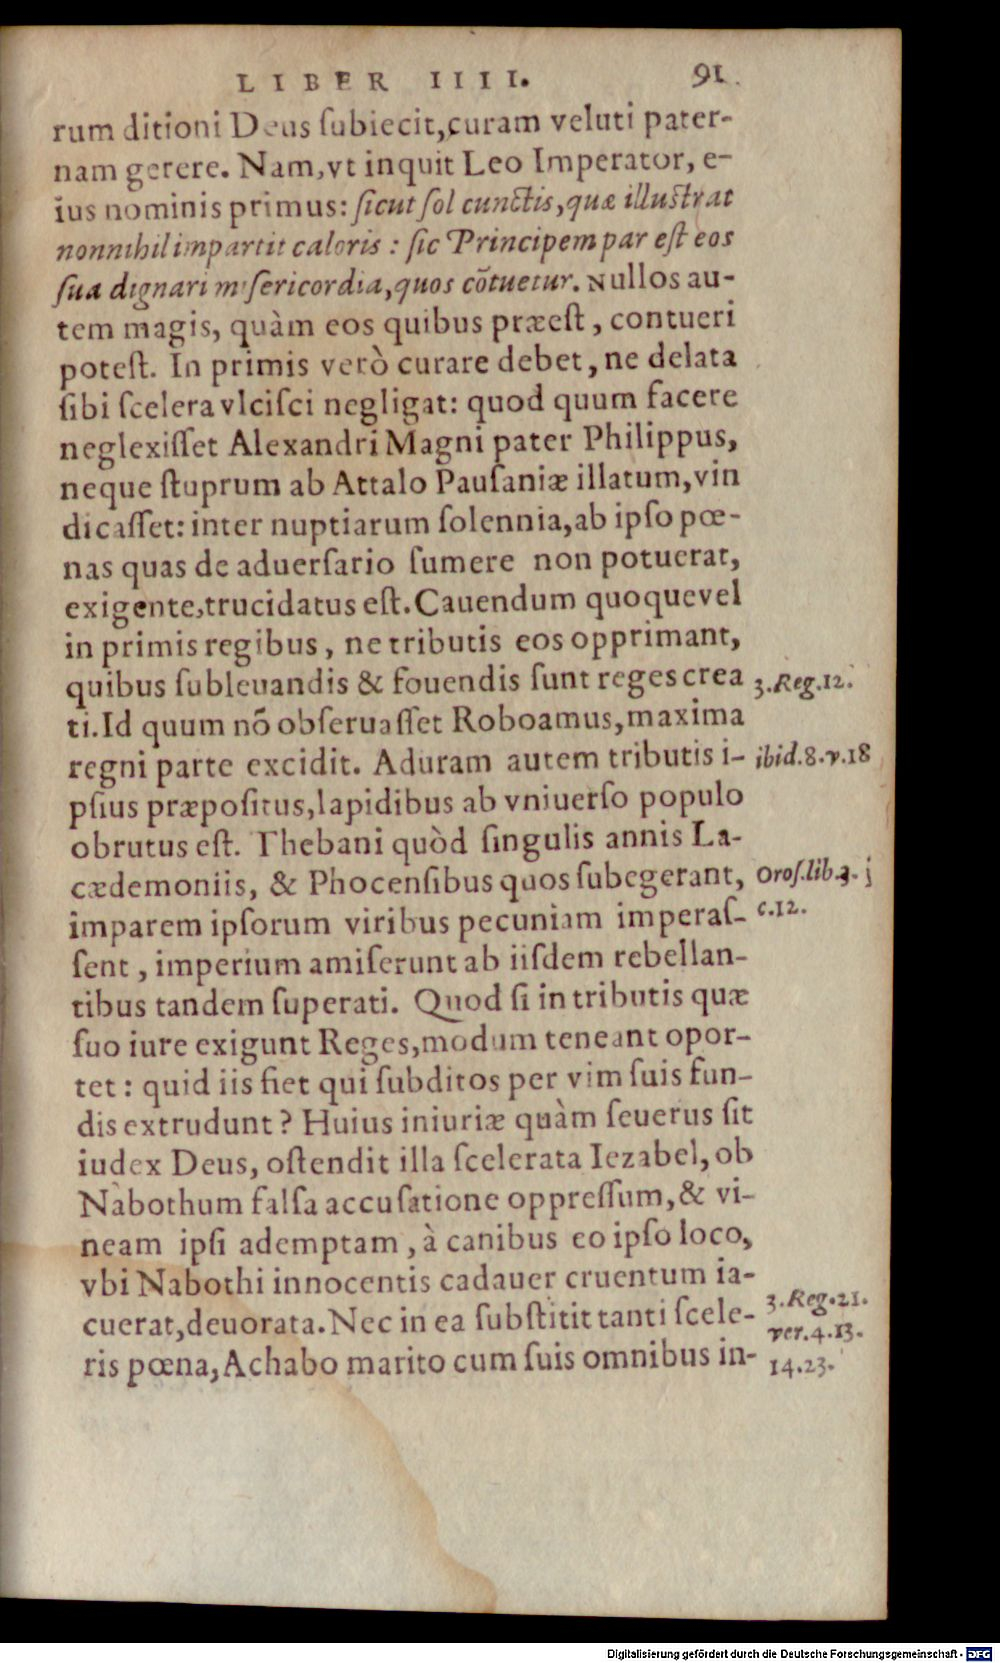 LIBER IIII. 91.
rum ditioni Deus ſubiecit,curam veluti pater-
nam gerere. Nam,vt inquit Leo Imperator, e-
ius nominis primus: ſicut ſol cunctis,quæ illuſtrat
nonnihil impartit caloris : ſic Principem par eſt eos
ſua dignari miſericordia,quos cõtuetur. Nullos au-
tem magis, quàm eos quibus præeſt, contueri
poteſt. In primis verò curare debet, ne delata
ſibi ſcelera vlciſci negligat: quod quum facere
neglexiſſet Alexandri Magni pater Philippus,
neque ſtuprum ab Attalo Pauſaniæ illatum,vin
dicaſſet: inter nuptiarum ſolennia,ab ipſo pœ-
nas quas de aduerſario ſumere non potuerat,
exigente,trucidatus eſt. Cauendum quoque vel
in primis regibus, ne tributis eos opprimant,
quibus ſubleuandis & fouendis ſunt reges crea 3.Reg.12.
ti. Id quum nõ obſeruaſſet Roboamus,maxima
regni parte excidit. Aduram autem tributis i- ibid.8.v.18
pſius præpoſitus,lapidibus ab vniuerſo populo
obrutus eſt. Thebani quòd ſingulis annis La-
cædemoniis, & Phocenſibus quos ſubegerant, Oroſ.lib.3.
imparem ipſorum viribus pecuniam imperaſ- c.12.
ſent, imperium amiſerunt ab iiſdem rebellan-
tibus tandem ſuperati. Quod ſi in tributis quæ
ſuo iure exigunt Reges,modum teneant opor-
tet : quid iis fiet qui ſubditos per vim ſuis fun-
dis extrudunt? Huius iniuriæ quàm ſeuerus ſit
iudex Deus, oſtendit illa ſcelerata Iezabel, ob
Nabothum falſa accuſatione oppreſſum,& vi-
neam ipſi ademptam, à canibus eo ipſo loco,
vbi Nabothi innocentis cadauer cruentum ia-
cuerat,deuorata. Nec in ea ſubſtitit tanti ſcele- 3.Reg.21.
ver.4.13.
ris pœna, Achabo marito cum ſuis omnibus in- 14.23.
Digitalisierung gefördert durch die Deutsche Forschungsgemeinschaft - DFG